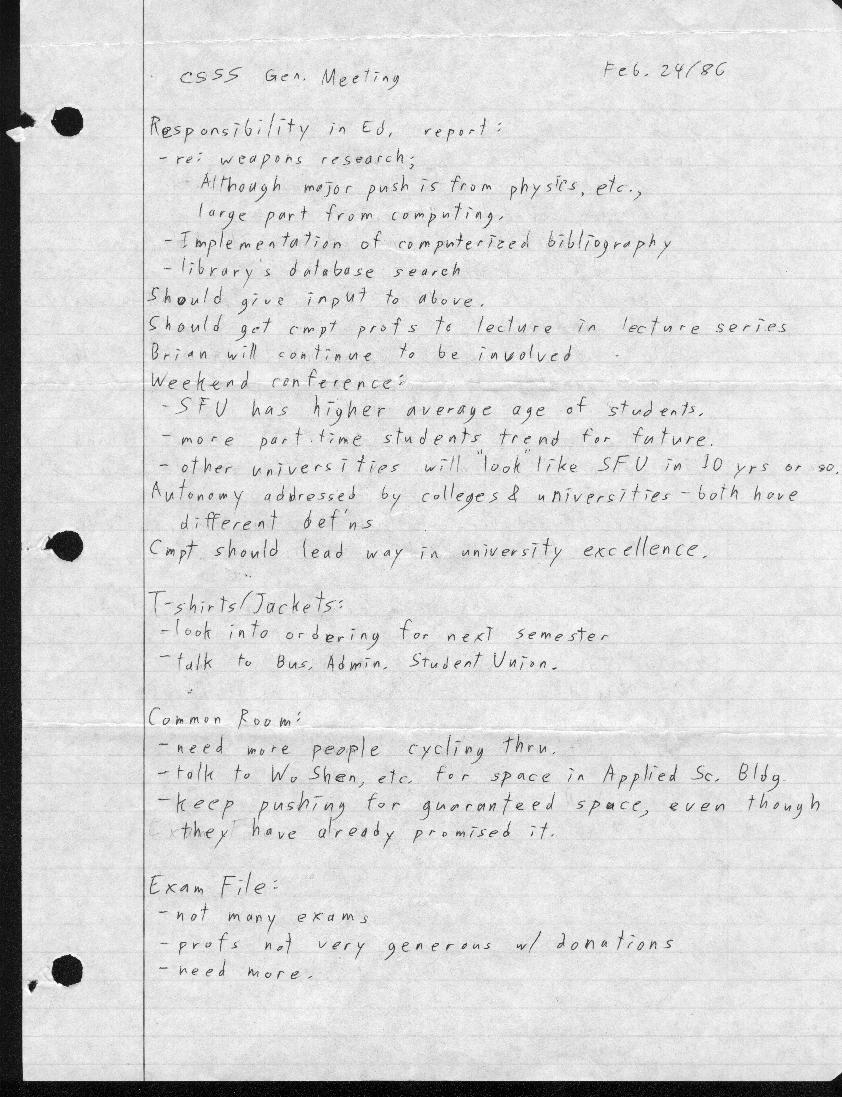 CSSS Gen. Meeting Feb. 24/86
Responsibility in Ed. report:
- re: weapons research;
Although major push is from physics, etc.,
large part from computing.
- Implementation of computerized bibliography
- library's database search
Should give input to above.
Should get cmpt profs to lecture in lecture series
Brian will continue to be involved
Weekend conference:
- SFU has higher average age of students.
- more part-time students trend for future.
- other universities will "look" like SFU in 10 yrs or so.
Autonomy addressed by colleges & universities - both have
different def'ns
Cmpt should lead way in university excellence.
T-shirts/Jackets:
- look into ordering for next semester
- talk to Bus. Admin. Student Union.
Common Room:
- need more people cycling thru.
- talk to Wo Shen, etc. for space in Applied Sc. Bldg.
- keep pushing for guaranteed space, even though
they have already promised it.
Exam File:
- not many exams
- profs not very generous w/ donations
- need more.